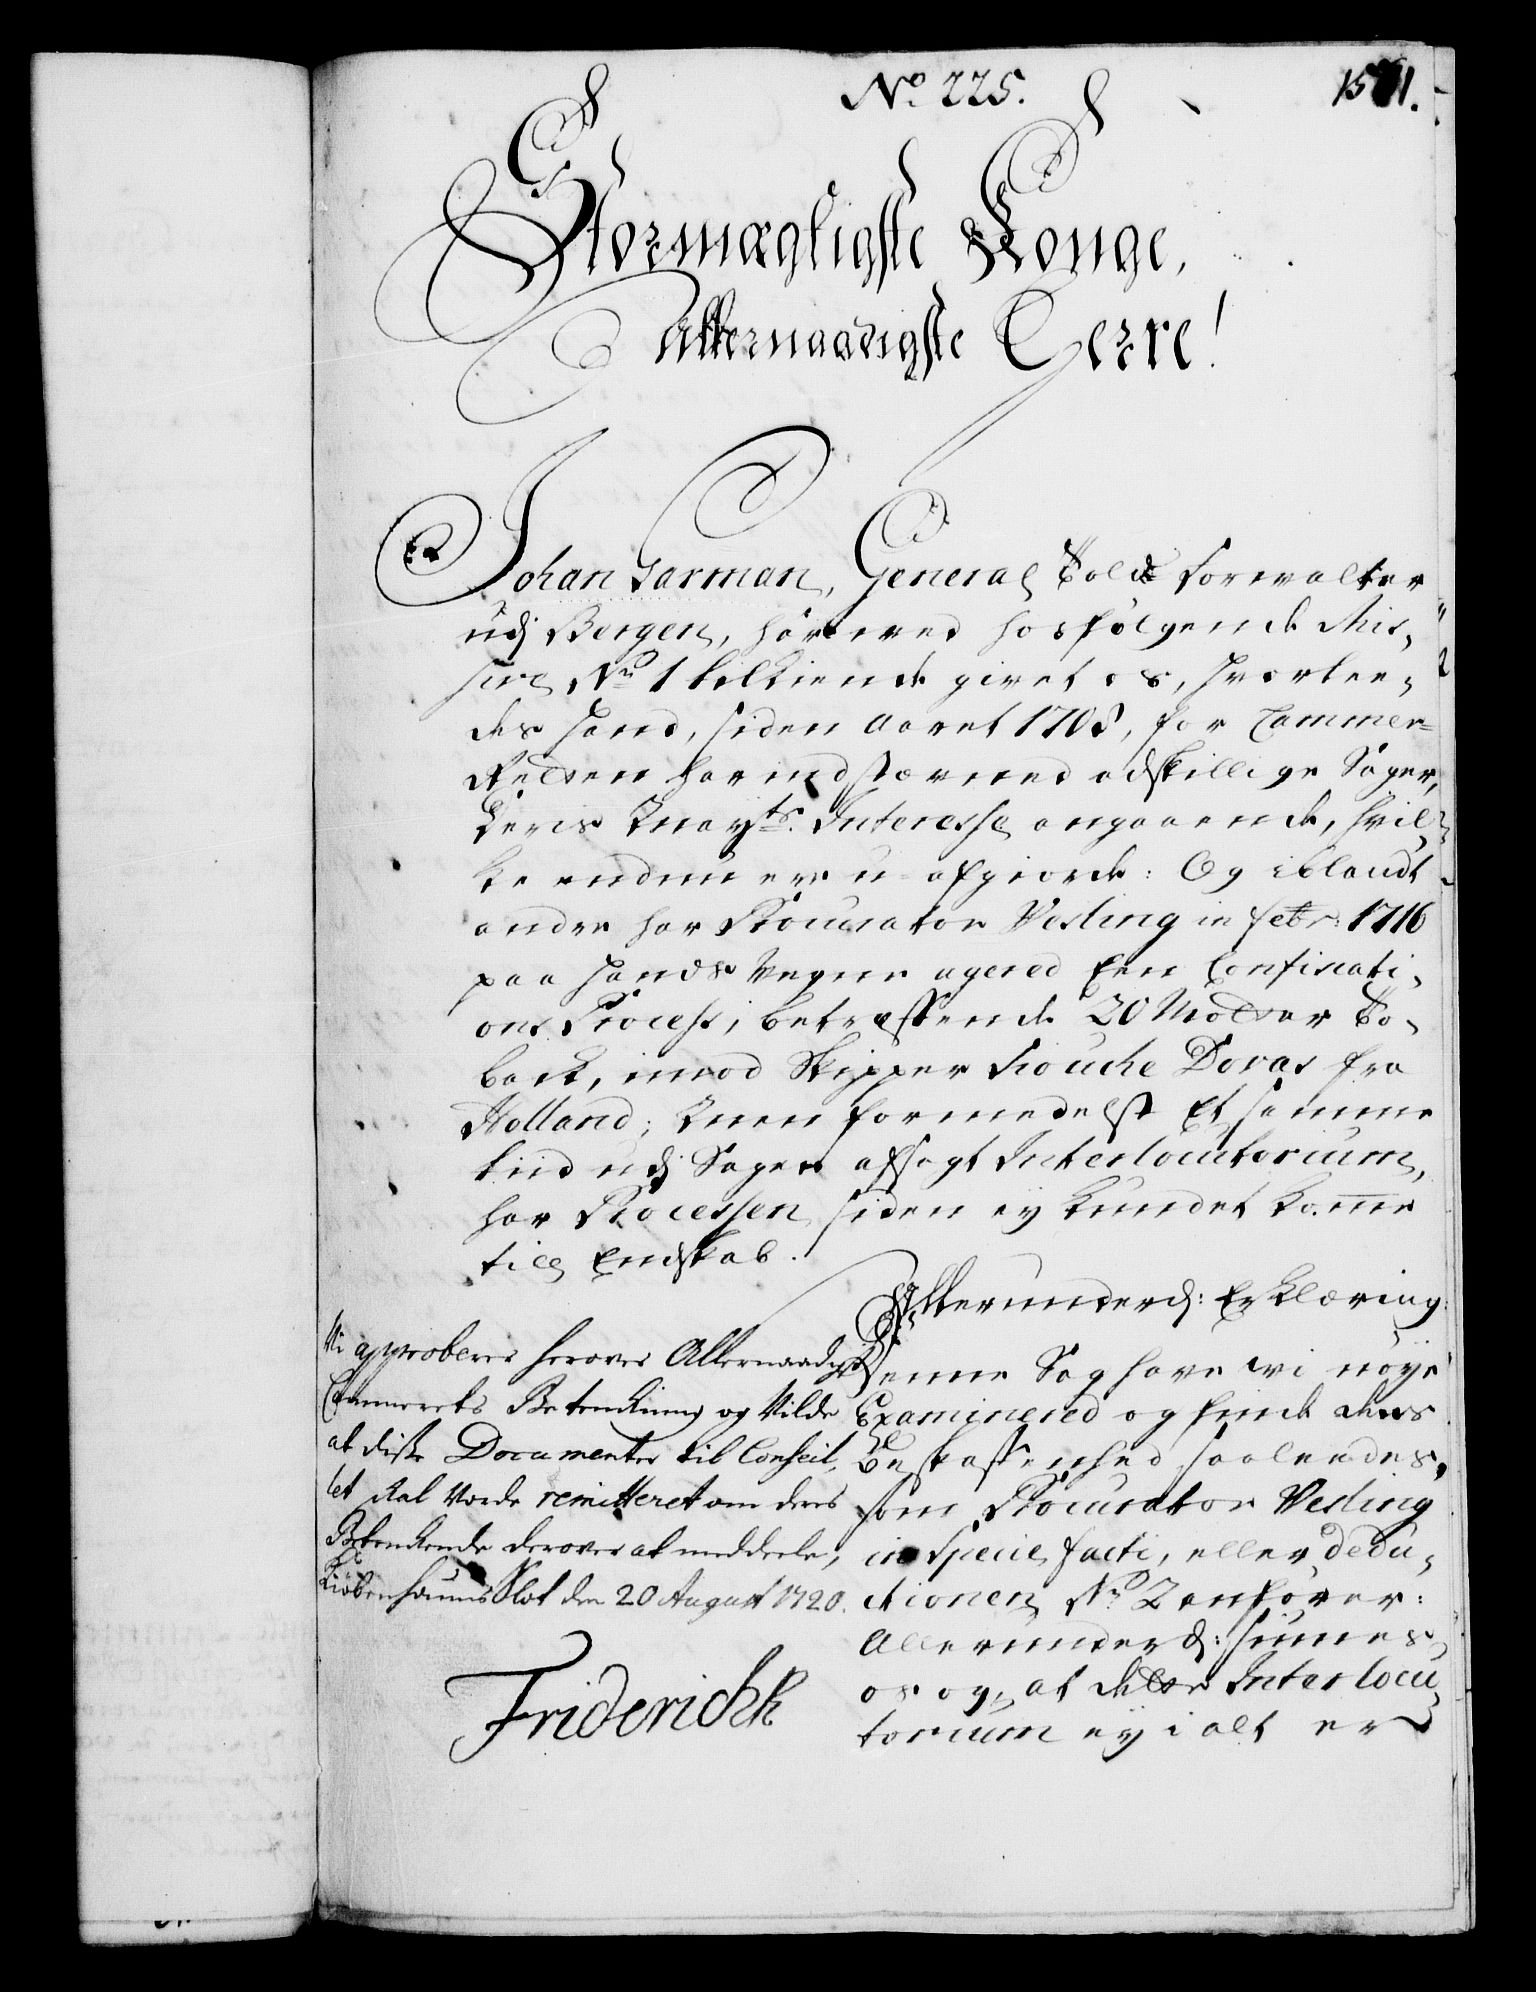 No. 225.
1571.
Stormægtigste Konge,
Allernaadigste Herre!
Johan Garman, General Told forvalter
udj Bergen, hâr med hosfølgende Mis,
sive No 1 tilkiende givet os, hvorlee,
des hand, siden aaret 1708, for Cammer=
Retten har indstævned adskillige Sager,
Deris Mayts. Interesse angaaende, hvil,
ke endnu ere u-afgiorde: Og iblandt
andre har Procurator Vesling in febr: 1716
paa hands Vegne agered Een Confiscati,
ons Process, betreffende 20 Roller To,
back, imod Skipper Douas fra
Holland; Men formedelst Et samme
tiid udj Sagen afsagt Interlocutorium,
har Processen siden ey kundet komme
till Endskab.
Allerunderd: Erklæring:
Denne Sag have wi nøye
Examinered og finde dens
Beskaffenhed saaleedes,
som Procurator Vesling
in Specie facti, eller dedu,
ctionen No 2 anfører:
Allerunderd: siunes
os og, at dette Interlocu,
torium ey i alt er
Vi approberer herover Allernaadigst
Cammerets Betenkning og Vilde
at disse Documenter til Conseil,
let skal Vorde remitteret om deris
Betenkende derover at meddeele,
Kiøbenhaufns Slot den 20 August 1720.
Friderich R